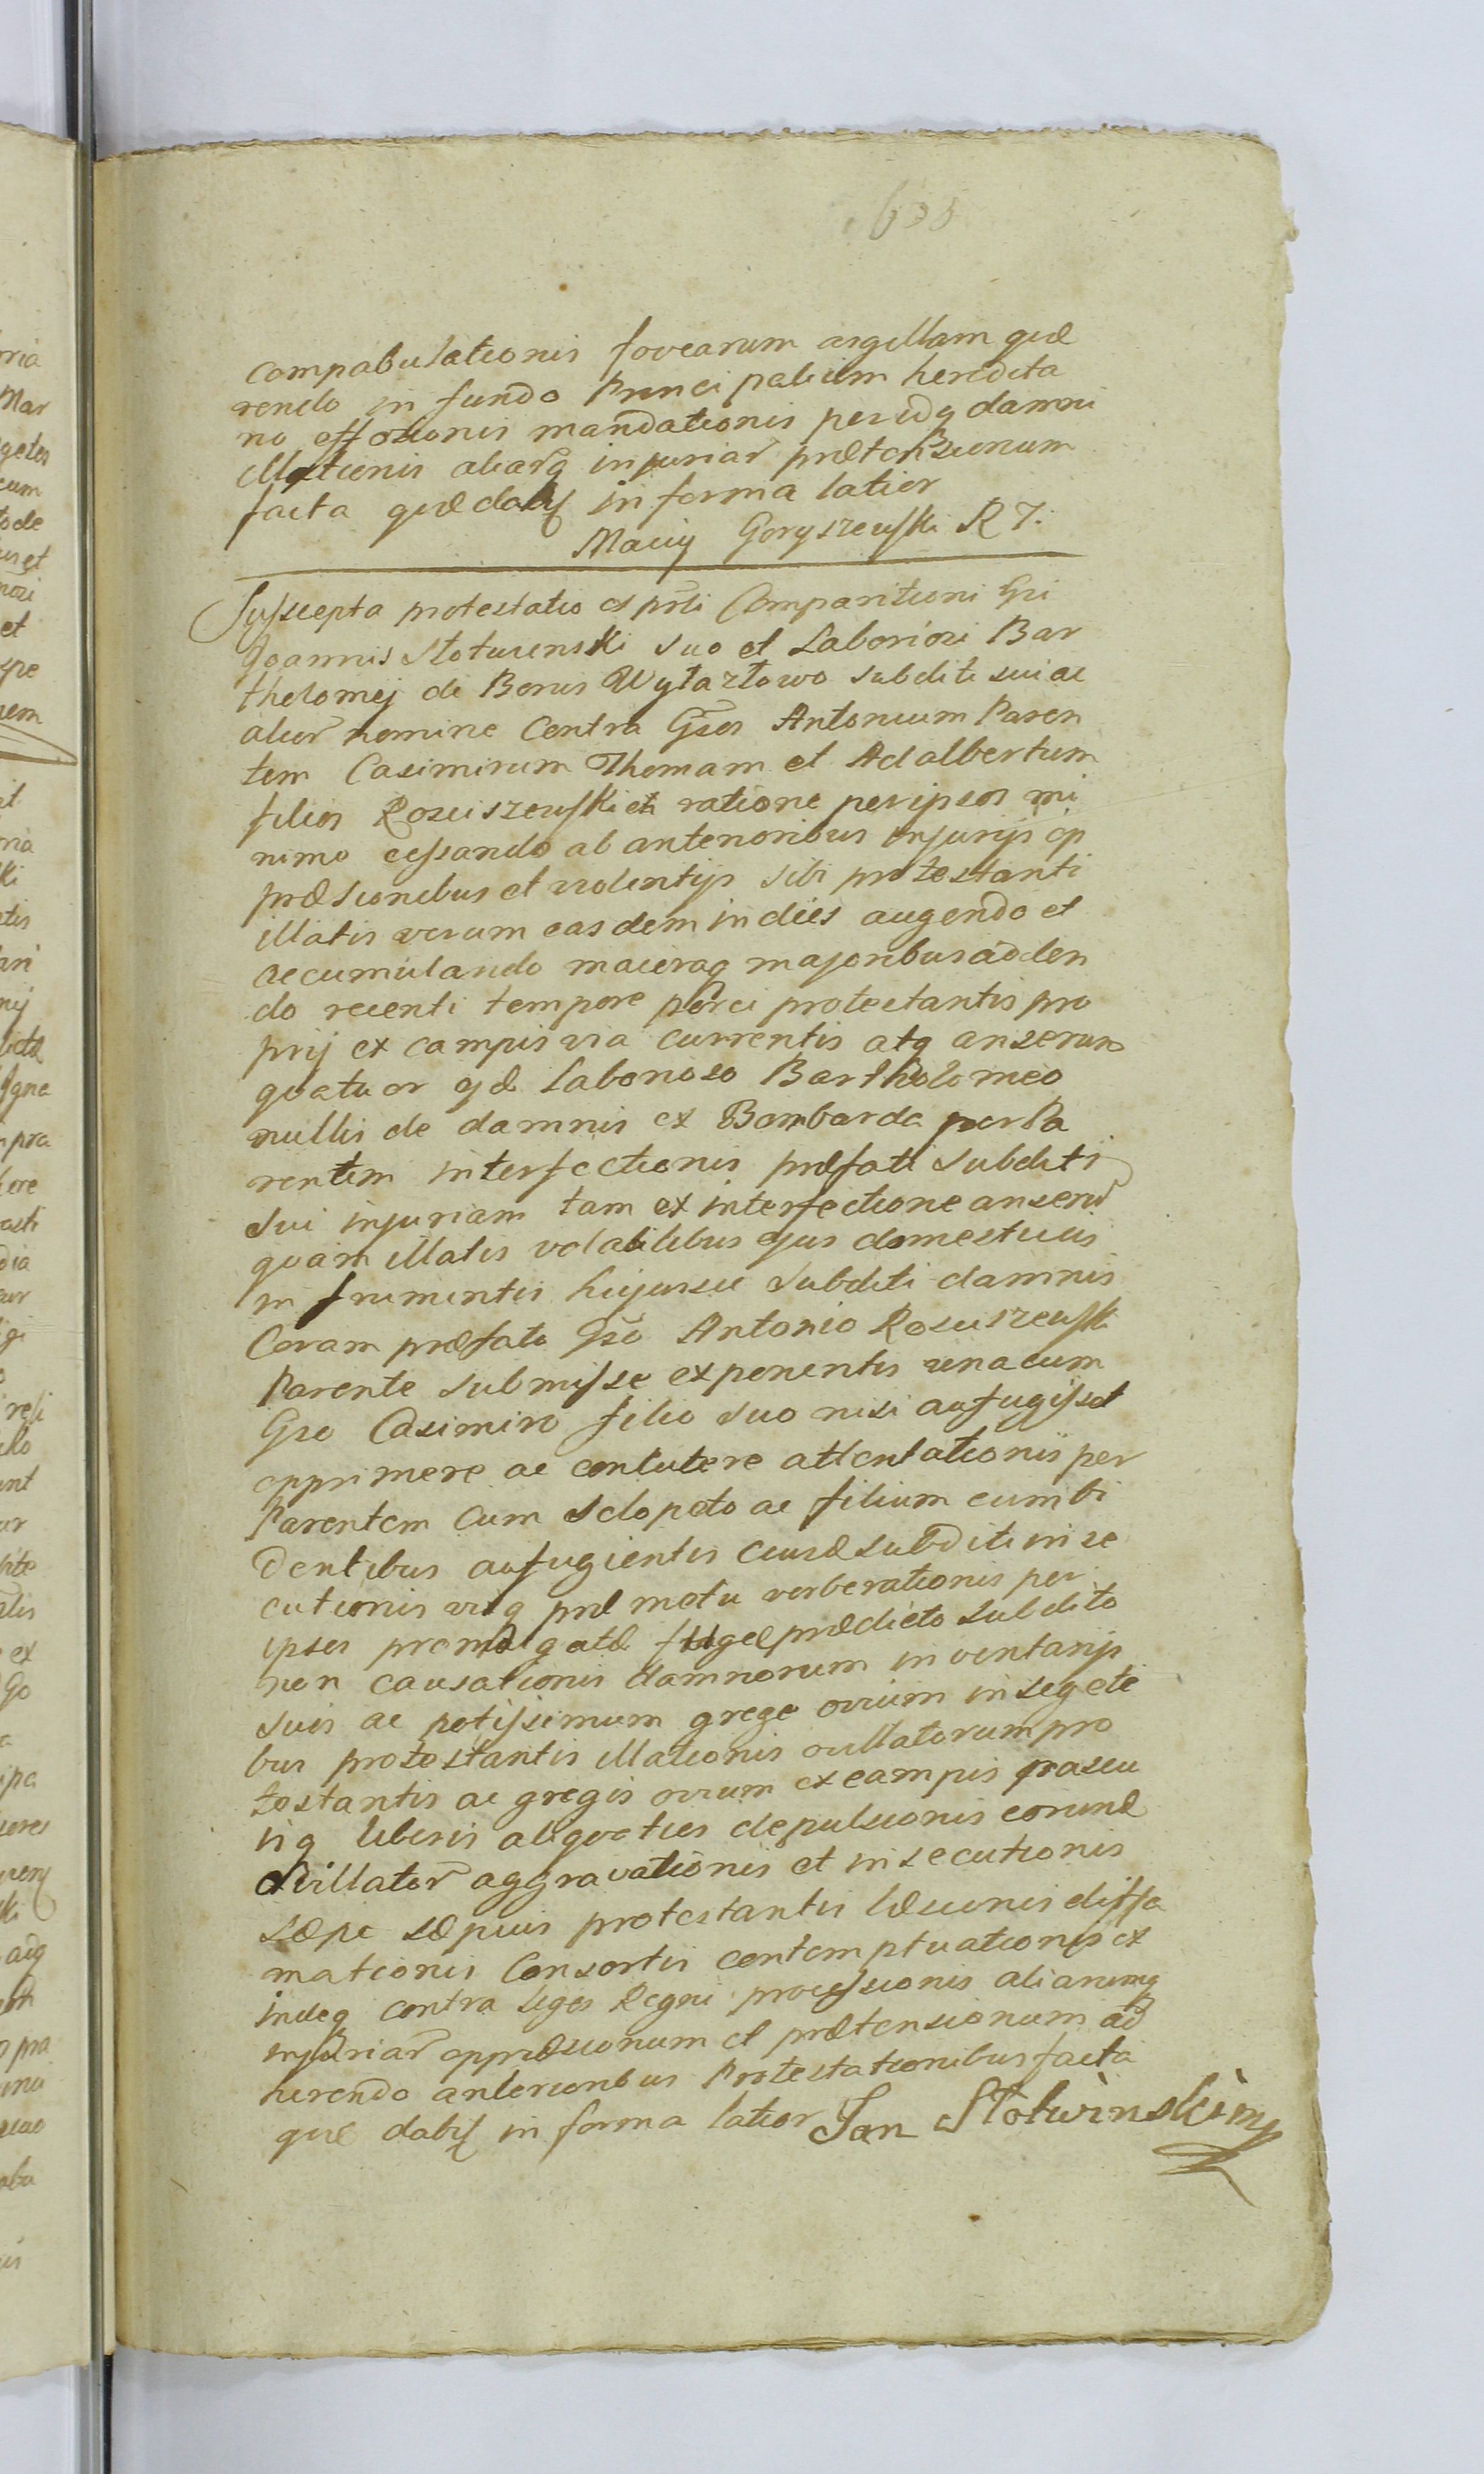 635
compabulationis fovearum argillam quæ
rendo in fundo Principalium heredita
rio effosionis mandationis peridq damni
illationis aliarq injuriar prætensionum
facta quæ dabg in forma latior
Maciy Goryszewski R T:
Suscepta protestatio ex prsti Comparitioni Gsi
Joannis Stotwenski suo et Laboriosi Bar
tholomej de Bonis Wytaztowo subditi sui ac
alior nomine Contra Gsos Antonium Paren
tem Casimirum Thomam et Adalbertum
filios Rosciszewskich ratione per ipsos mi
nime cessando ab anterioribus injurijs op
præsionibus et violentijs sibi protestanti
illatis verum easdem indies augendo et
accumulando maioraq majoribus adden
do recenti tempore porci protestantis pro
prij ex campis via currentis atq anserum
quatuor qd Laborioso Bartholomeo
nullis de damnis ex Bombarda per Pa
rentem interfectionis præfati subditi
sui injuriam tam ex interfectione anserū
quam illatis volatilibus ejus domesticis
in frumentis hujusce subditi damnis
Coram præfato Gso Antonio Rosciszewski
Parente submisse exponentis una cum
Gso Casimiro filio suo nisi aufugisset
opprimere ac contutere attentationis per
Parentem cum sclopeto ac filium cum bi
dentibus aufugientis ejusd subditi inse
cutionis viq præ metu verberationis per
ipsos promulgatæ fugæ prædicto subdito
non causationis damnorum in ventarijs
suis ac potissimum grege ovium in segete
bus protestantis illationis villatorum pro
testantis ac gregis ovium ex campis pascu
isq liberis aliquoties depulsionis eorund
villator aggravationis et insecutionis
sæpe sæpius protestantis læsionis diffa
mationis Consortis contemptuationis ex
indeq contra Leges Regni processionis aliarumq
injuriar oppræsionum et prætensionum ad
herendo anterioribus Protestationibus facta
quæ dabg in forma latior Jan Stotwinski mp